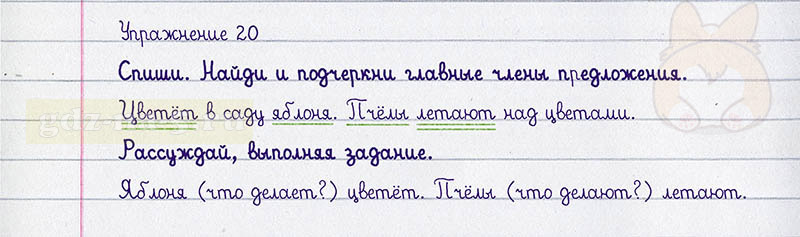 Упражнение 20
Спиши. Найди и подчеркни главные члены предложения.
Цветёт в саду яблоня. Пчёлы летают над цветами.
Рассуждай, выполняя задание.
Яблоня (что делает?) цветёт. Пчёлы (что делают?) летают.